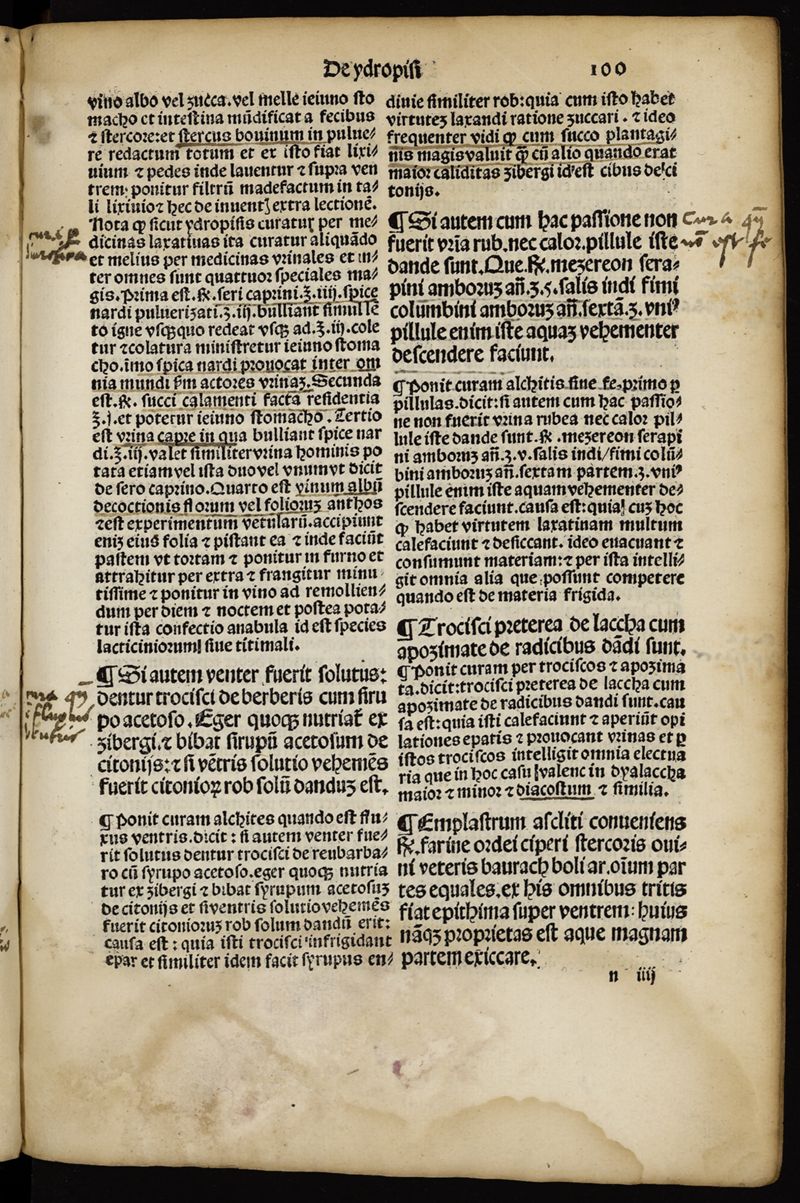 De ydropisi
100
vino albo vel zucca.vel melle ieiuno sto
macho et intestina mūdificat a fecibus
⁊ stercore:et stercus bouinum in pulue⸗
re redactum totum et ex isto fiat lixi⸗
uium ⁊ pedes inde lauentur ⁊ supra ven
trem: ponitur filtrū madefactum in ta⸗
li lixiuio⁊ hec de inuent] extra lectionē.
Nota ꝙ sicut ydropisis curatur per me⸗
dicinas laxatiuas ita curatur aliquādo
et melius per medicinas vrinales et in⸗
ter omnes sunt quattuor speciales ma⸗
gis.Prima est.℞.seri caprini.℥.iiij.spice
nardi pulueriȝati.ʒ.iij.bulliant simul lē
to igne vsqȝquo redeat vsqȝ ad.℥.iij.cole
tur ⁊colatura ministretur ieiuno stoma
cho.imo spica nardi prouocat inter om
nia mundi ẜm actores vrinaȝ.Secunda
est.℞. succi calamenti facta residentia
℥.j.et potetur ieiuno stomacho.Tertio
est vrina capre in qua bulliant spice nar
di.ʒ.iij.valet similitervrina hominis po
tata etiamvel ista duovel vnumvt dicit
de sero caprino.Quarto est vinum albū
decoctionis florum vel folioruȝ anthos
⁊est experimentum vetularū.accipiunt
eniȝ eius folia ⁊ pistant ea ⁊ inde faciūt
pastem vt tortam ⁊ ponitur in furno et
attrahitur per extra ⁊ frangitur minu
tissime ⁊ ponitur in vino ad remollien⸗
dum per diem ⁊ noctem et postea pota⸗
tur ista confectio anabula id est species
lacticiniorum] siue titimali.
¶Si autem venter fuerit solutus:
dentur trocisci de berberis cum siru
po acetoso.Eger quoqȝ nutriat̄ ex
zibergi.⁊ bibat sirupū acetosum de
citonijs:⁊ si vētris solutio vehemēs
fuerit citonioꝝ rob solū danduȝ est.
¶Ponit curam alchites quando est flu⸗
xus ventris.dicit : si autem venter fue⸗
rit solutus dentur trocisci de reubarba⸗
ro cū syrupo acetoso.eger quoqȝ nutria
tur ex zibergi ⁊ bibat syrupum acetosuȝ
de citonijs et siventris solutio vehemēs
fuerit citonioruȝ rob solum dandū erit:
causa est : quia isti trocisci infrigidant
epar et similiter idem facit syrupus en⸗
diuie similiter rob:quia cum isto habet
virtuteȝ laxandi ratione zuccari . ⁊ ideo
frequenter vidi ꝙ cum succo plantagi⸗
nis magisvaluit ꝙ̄ cū alio quando erat
maior caliditas zibergi id'est cibus de'ci
tonijs.
¶Si autem cum hac passione non
fuerit vria rub.nec calor.pillule iste
dande sunt.Que.℞.mezereon sera⸗
pini amboruȝ añ.ʒ.5.salis indi fimi
columbini amboruȝ añ.sextā.ʒ.vniꝰ
pillule enim iste aquaȝ vehementer
descendere faciunt.
¶Ponit curam alchitis sine fe.primo ꝑ
pillulas.dicit:si autem cum hac passio⸗
ne non fuerit vrina rubea nec calor pil⸗
lule iste dande sunt.℞ .mezereon serapi
ni amboruȝ añ.ʒ.v.salis indi/fimi colū⸗
bini amboruȝ añ.sextam partem.ʒ.vniꝰ
pillule enim iste aquamvehementer de⸗
scendere faciunt.causa est:quia] cuȝ hoc
ꝙ habet virtutem laxatinam multum
calefaciunt ⁊ desiccant. ideo euacuant ⁊
consumunt materiam:⁊ per ista intelli⸗
git omnia alia que possunt competere
quando est de materia frigida.
¶Trocisci preterea de laccha cum
apozimate de radicibus dādi sunt.
¶Ponit curam per trociscos ⁊ apozima
ta.dicit:trocisci preterea de laccha cum
apozimate de radicibus dandi sunt.cau
sa est:quia isti calefaciunt ⁊ aperiūt opi
lationes epatis ⁊ prouocant vrinas et ꝑ
istos trociscos intelligit omnia electua
ria que in hoc casu ]valent in dyalaccha
maior ⁊ minor ⁊ diacostum ⁊ similia.
¶Emplastrum ascliti conueniens
℞.farine ordei ciperi stercoris oui⸗
ni veteris baurach boli ar.oīum par
tes equales.ex his omnibus tritis
fiat epithima super ventrem: huius
nāqȝ proprietas est aque magnam
partem exiccare.
n iiij